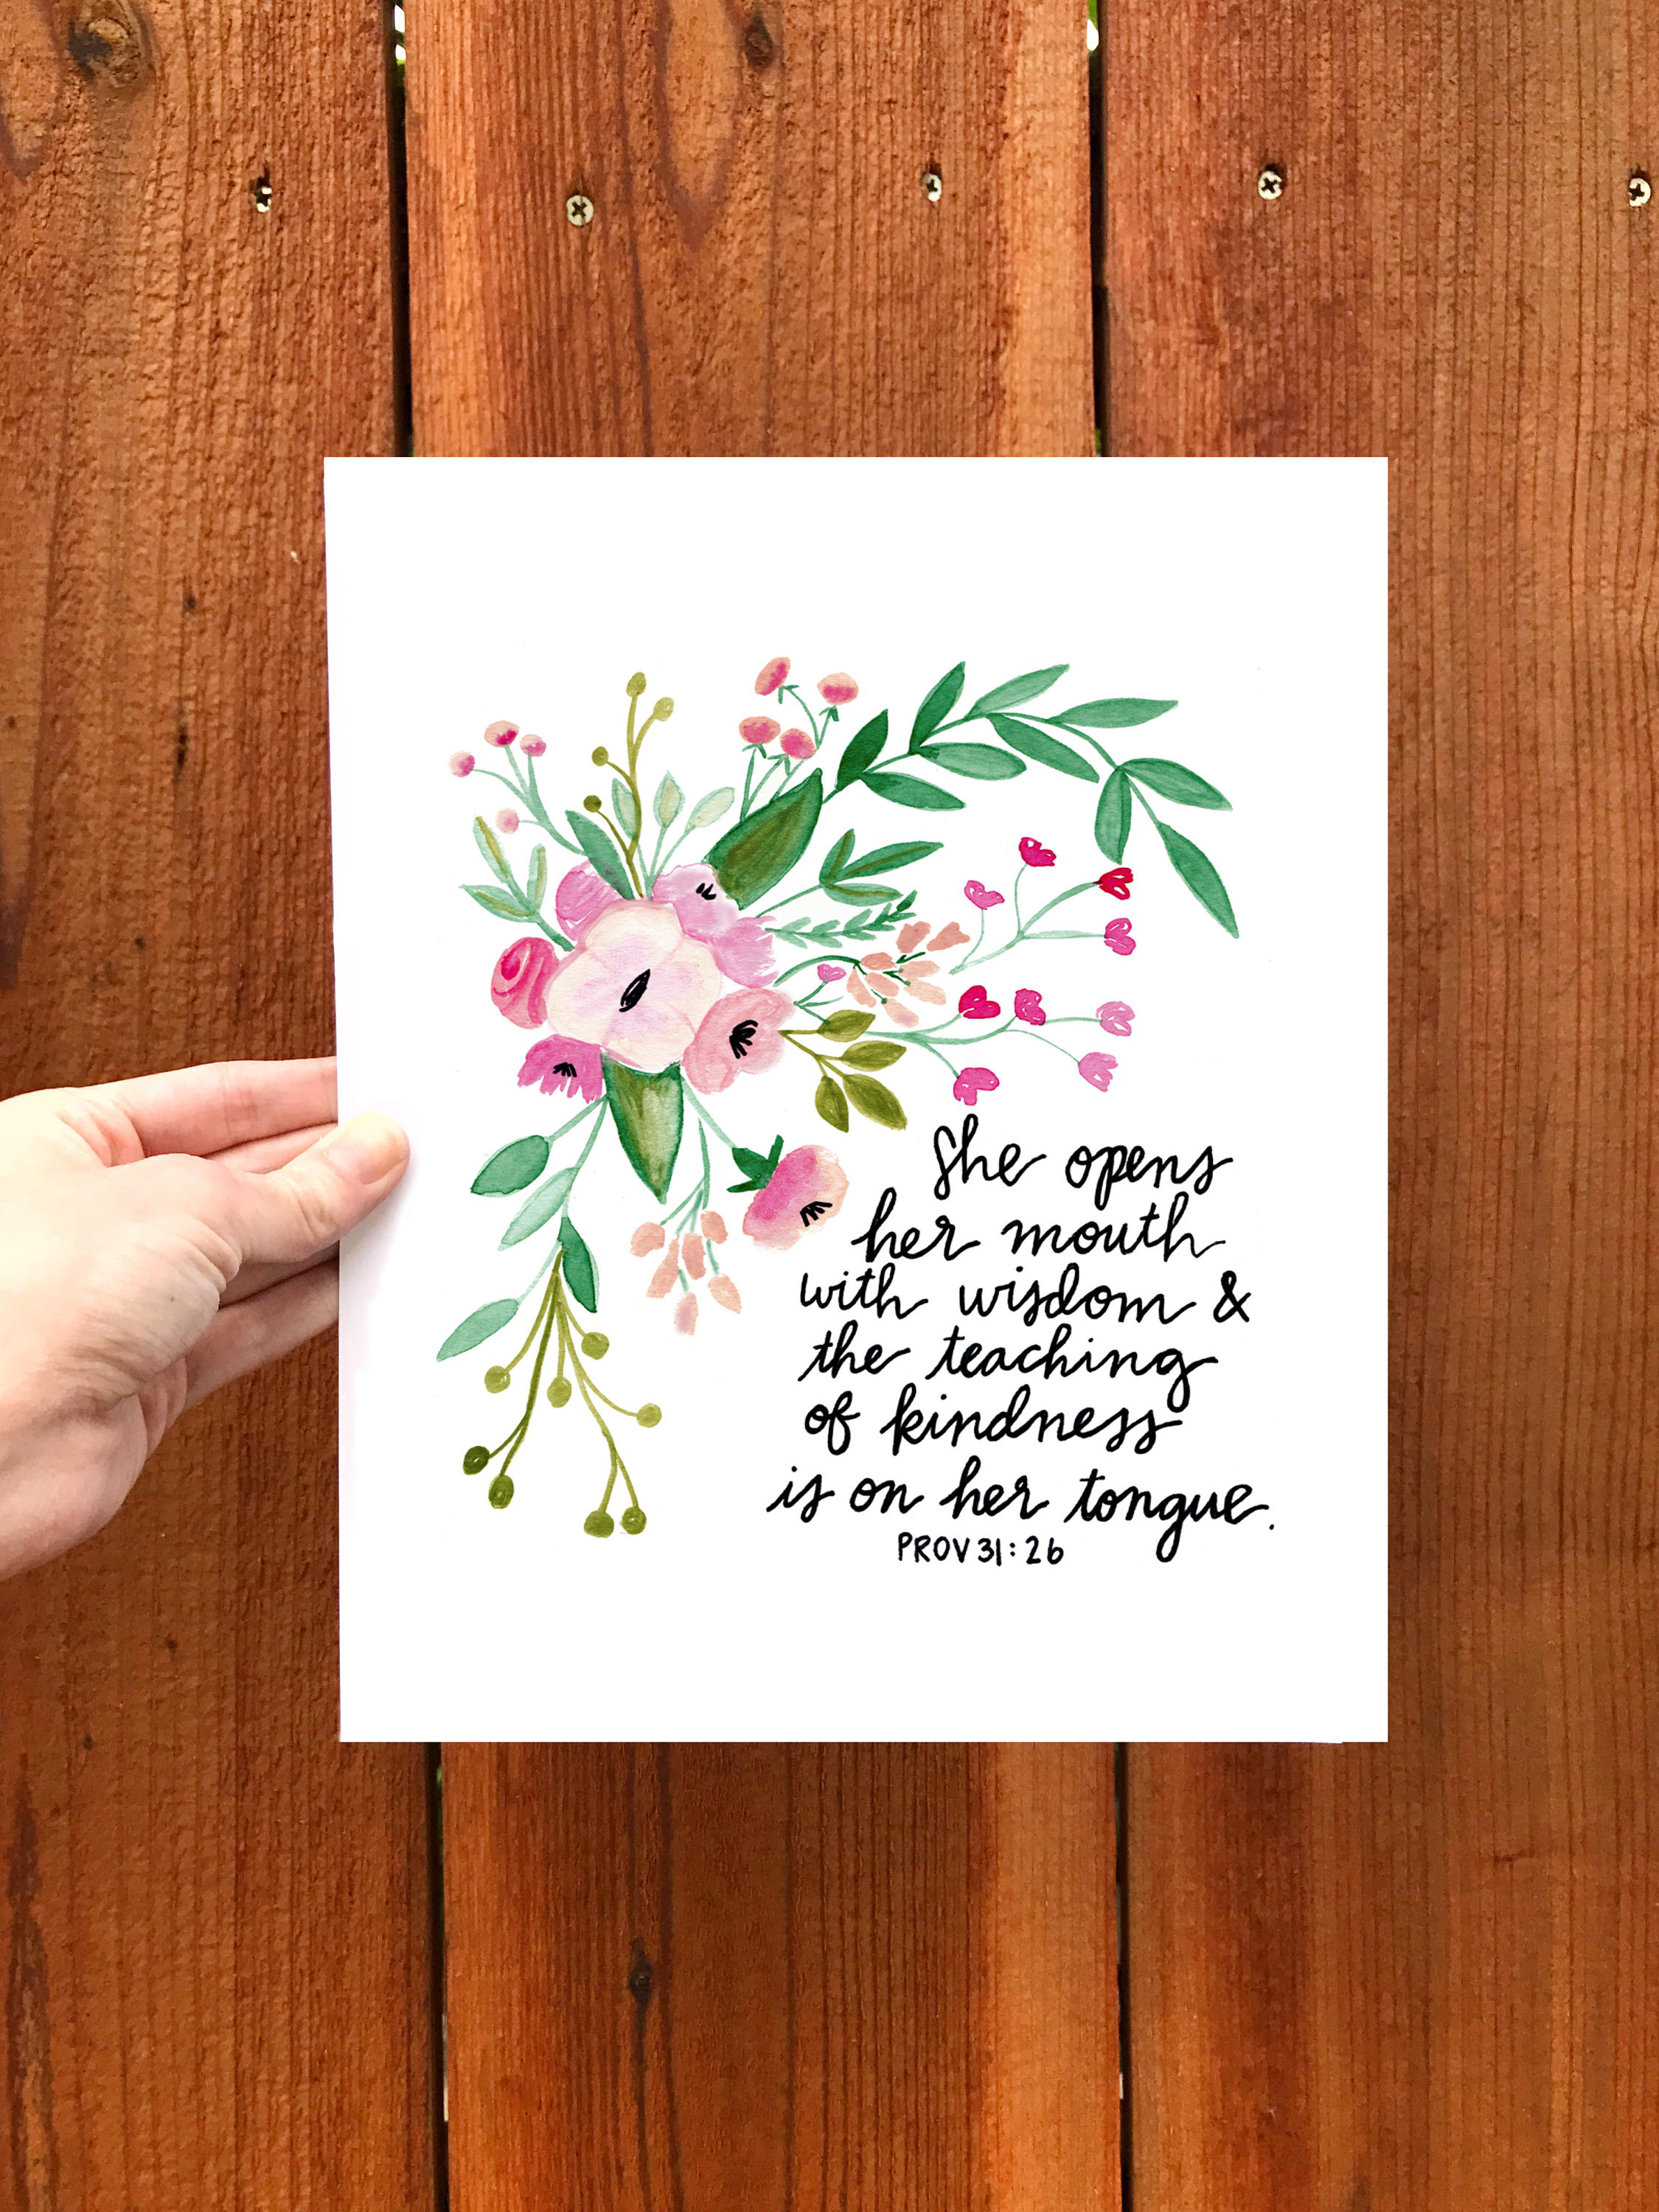 She opens
her mouth
with wisdom &
the teaching
of kindness
is on her tongue.
PROV 31:26